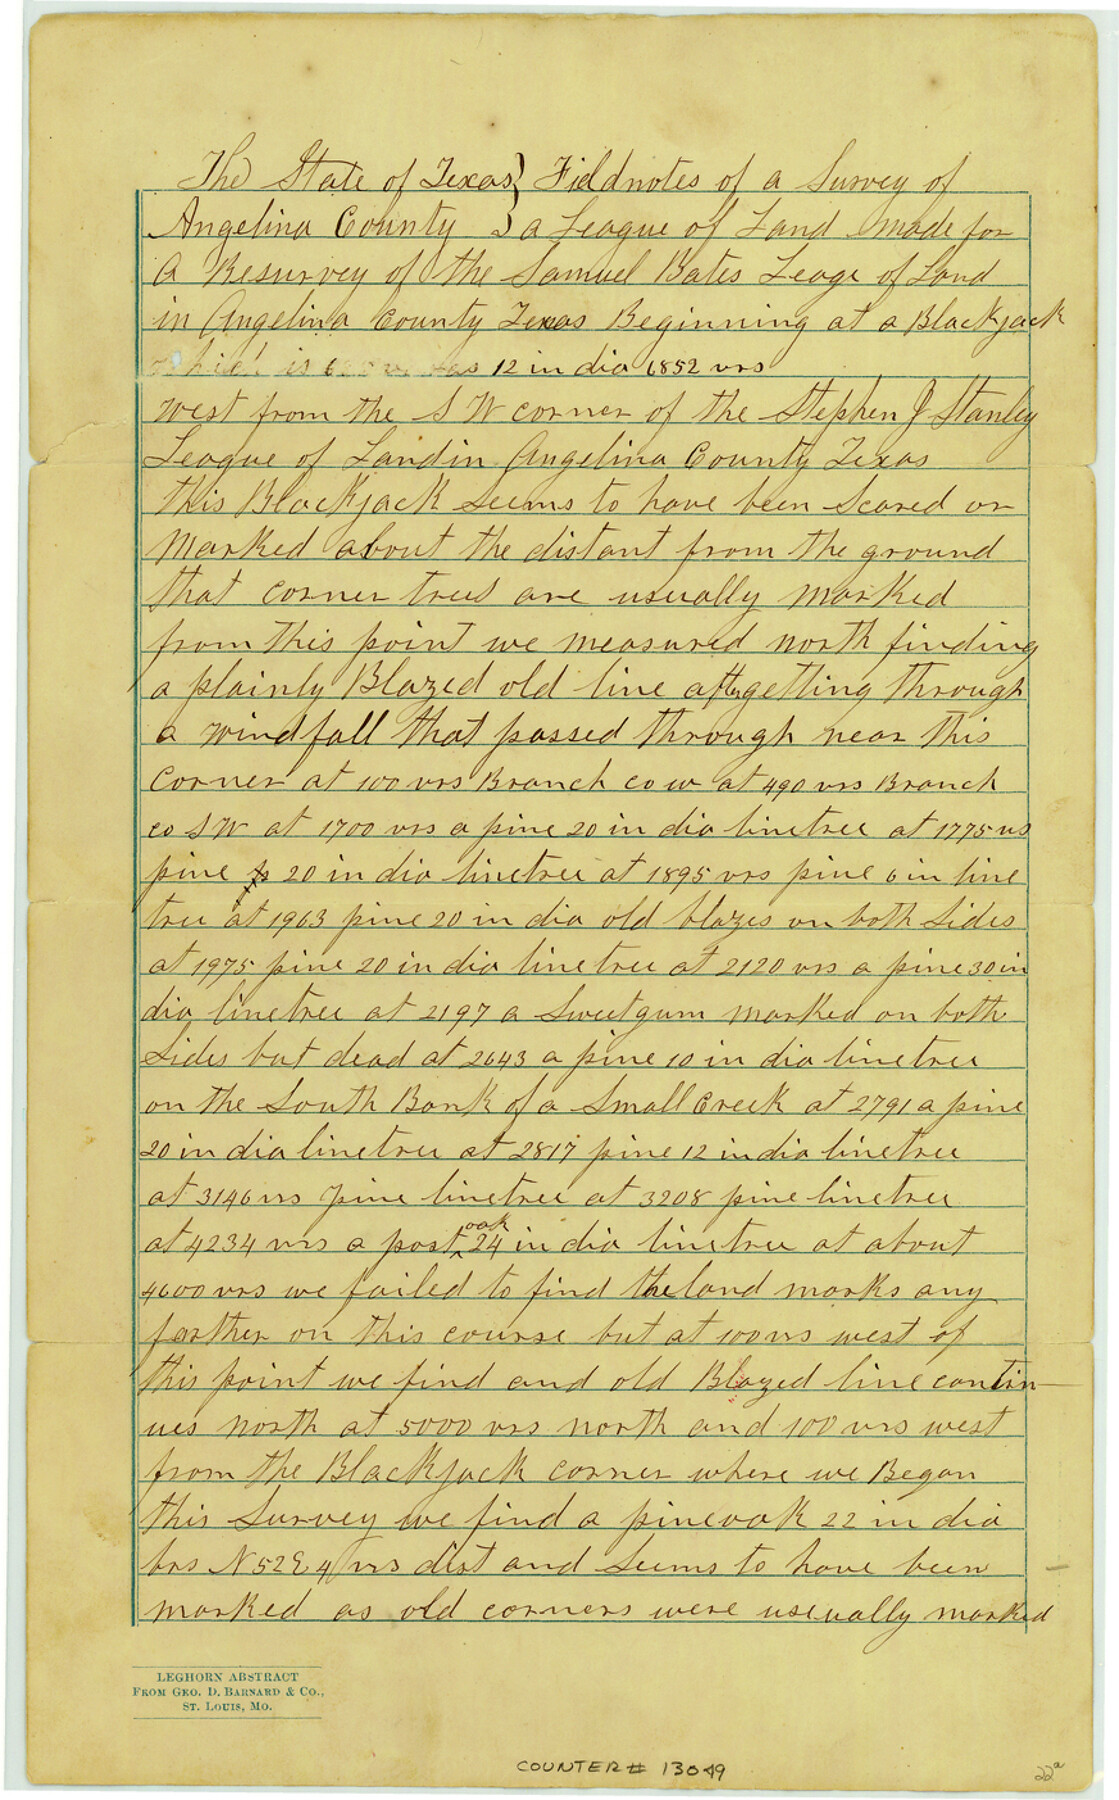 The State of Texas } Fieldnotes of a Survey of
Angelina County } a League of Land made for
a Resurvey of the Samuel Bates Leage of Land
in Angelina County Texas Beginning at a Blackjack
which is 12 in dia 6852 vrs
west from the S W corner of the Stephen J Stanley
League of Land in Angelina County Texas
this Blackjack seems to have been Scared or
Marked about the distant from the ground
that corner trees are usually marked
from this point we measured north finding
a plainly Blazed old line after getting through
a windfall that passed through near this
Corner at 100 vrs Branch co w at 490 vrs Branch
co S W at 1700 vrs a pine 20 in dia linetree at 1775 vrs
pine 20 in dia linetree at 1895 vrs pine 6 in line
tree at 1963 pine 20 in dia old blazes on both sides
at 1975 pine 20 in dia linetree at 2120 vrs a pine 30 in
dia linetree at 2197 a Sweetgum marked on both
sides but dead at 2643 a pine 10 in dia linetree
on the South Bank of a Small Creek at 2791 a pine
20 in dia linetree at 2817 pine 12 in dia linetree
at 3146 vrs pine linetree at 3208 pine linetree
at 4234 vrs a post oak 24 in dia linetree at about
4600 vrs we failed to find the land marks any
farther on this course but at 100 vrs west of
this point we find and old Blazed line contin-
ues north at 5000 vrs north and 100 vrs west
from the Blackjack corner where we Began
this Survey we find a pineoak 22 in dia
brs N 52 E 4 vrs dist and seems to have been
marked as old corners were useually marked
LEGHORN ABSTRACT
FROM GEO. D. BARNARD & CO.,
ST. LOUIS, MO.
COUNTER # 13049
22a